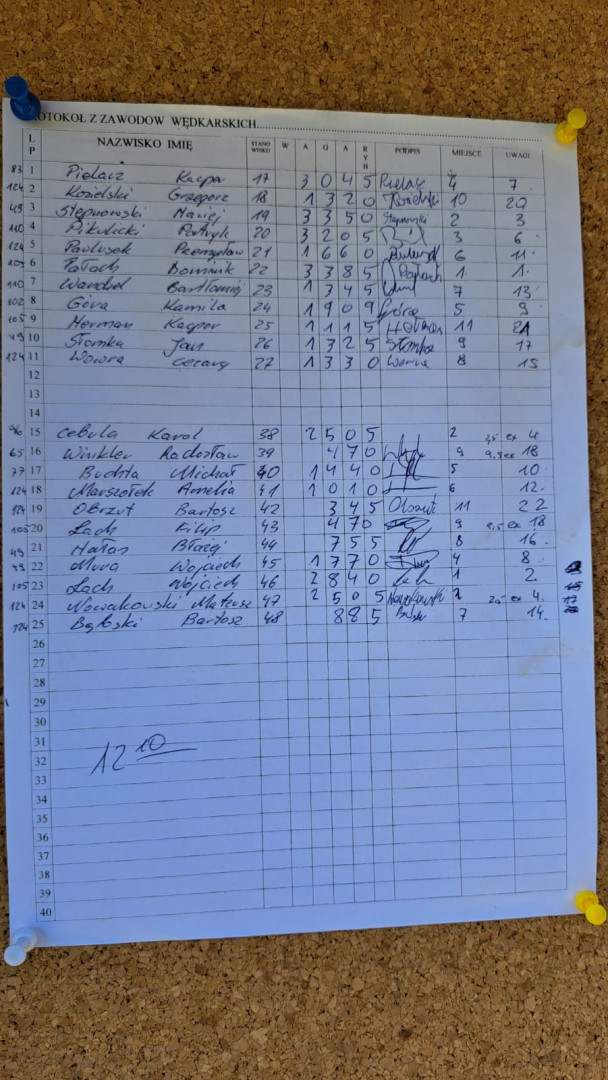 ROTOKOŁ Z ZAWODÓW WĘDKARSKICH
LP NAZWISKO IMIĘ STANOWISKO W A G A RYB PODPIS MIEJSCE UWAGI
83 1 Pielarz Kacper 17 3 0 4 5 Pielarz 4 7
124 2 Kozielski Grzegorz 18 1 3 2 0 Kozielski 10 20
49 3 Stępnowski Maciej 19 3 3 5 0 Stępnowski 2 3
110 4 Pikulicki Patryk 20 3 2 0 5 3 6
124 5 Pawlusek Przemysław 21 1 6 6 0 6 11
6 Pałach Dominik 22 3 3 8 5 Pałach 1 1
110 7 Wandzel Bartłomiej 23 1 3 4 5 7 13
102 8 Góra Kamila 24 1 9 0 9 Góra 5 9
105 9 Herman Kacper 25 1 1 1 5 Herman 11 21
49 10 Słomka Jan 26 1 3 2 5 Słomka 9 17
124 11 Wowra Cezary 27 1 3 3 0 Wowra 8 15
12
13
14
96 15 Cebula Karol 38 2 5 0 5 2 2,5 ex 4
65 16 Winkler Radosław 39 4 7 0 9 9,5 ex 18
77 17 Buchta Michał 40 1 4 4 0 5 10
124 18 Marszołek Amelia 41 1 0 1 0 6 12
124 19 Obrzut Bartosz 42 3 4 5 Obrzut 11 22
105 20 Lach Filip 43 4 7 0 9 9,5 ex 18
49 21 Hałas Błażej 44 7 5 5 8 16
49 22 Mura Wojciech 45 1 7 7 0 4 8
105 23 Lach Wojciech 46 2 8 4 0 1 2
124 24 Nowakowski Mateusz 47 2 5 0 5 Nowakowski 2 2,5 ex 4
124 25 Bąłoski Bartosz 48 8 8 5 7 14
26
27
28
29
30
31
12 10
32
33
34
35
36
37
38
39
40